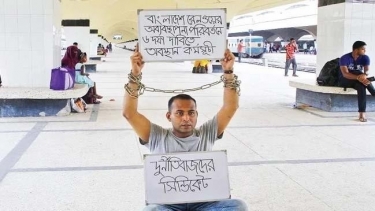 বাংলাদেশ রেলওয়ের
অব্যবস্থাপনা পরিবর্তনে
৬ দফা দাবিতে
অবস্থান কর্মসূচী
দুর্নীতিবাজদের
সিন্ডিকেট